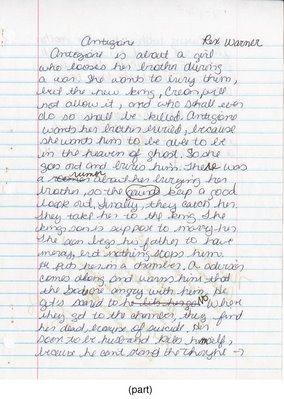 Antigone Rex Warner
Antigone is about a girl
who looses her brother during
a war. She wants to bury them,
but the new king, Creon, will
not allow it, and who shall ever
do so shall be killed. Antigone
wants her brother buried, because
she wants him to be able to be
in the heaven of ghost. So she
goes out and buries him. There was
a rumor about her burying her
brother, so the keep a good
look out, finally, they catch her.
They take her to the king. The
kings son is suppose to marry her.
The son begs his father to have
mercy, but nothing stops him.
He puts her in a chamber. A advisor
comes along and warns him that
the are angry with him. He
gets sacred to No When
they get to the chamber, they find
her dead, because of suicide. Her
soon to be husband kills himself,
because he can't stand the thought →
(part)